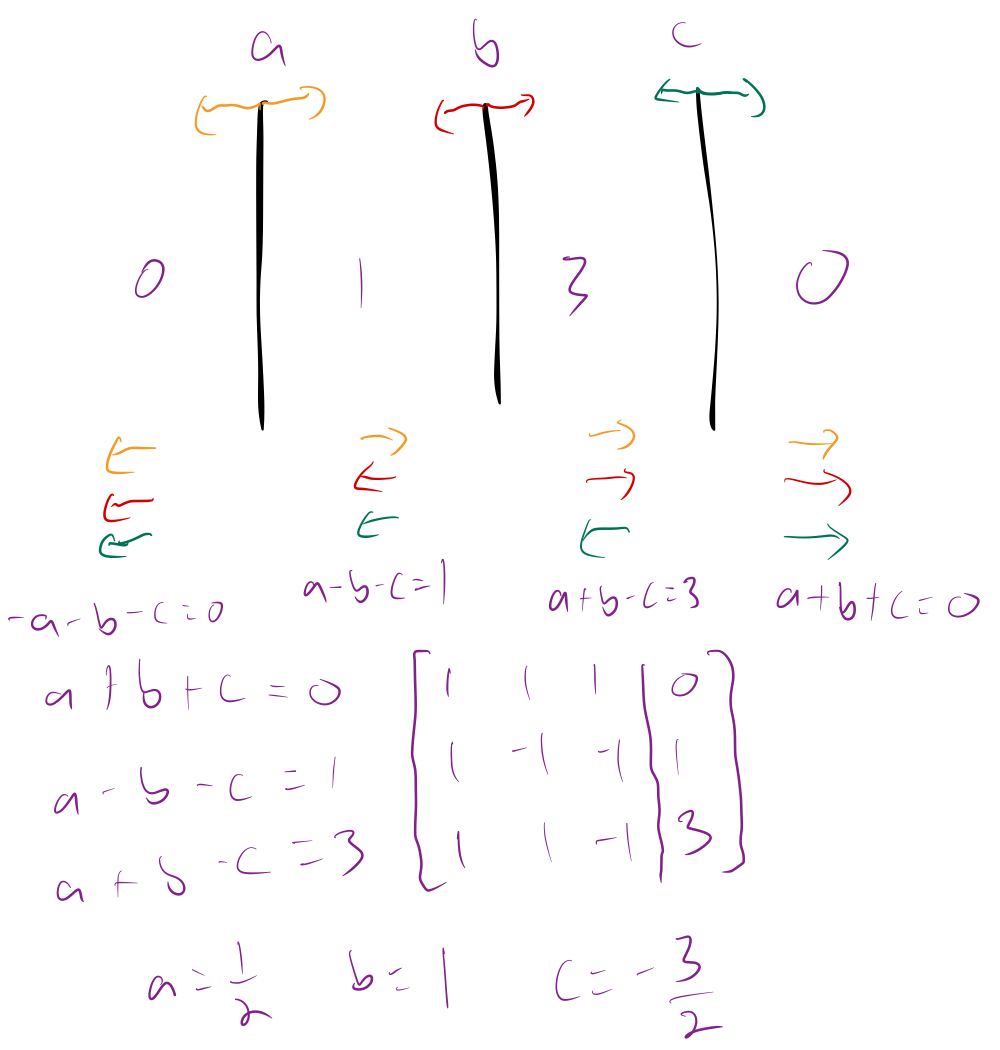 a b c
0 1 3 0
-a-b-c=0 a-b-c=1 a+b-c=3 a+b+c=0
a+b+c=0 [1 1 1 | 0]
a-b-c=1 [1 -1 -1 | 1]
a+b-c=3 [1 1 -1 | 3]
a=1/2 b=1 c=-3/2